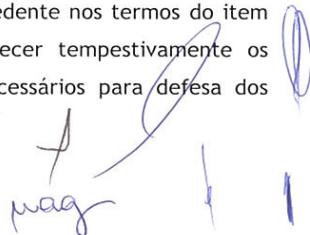 edente nos termos do item
ecer tempestivamente os
cessários para defesa dos
mag